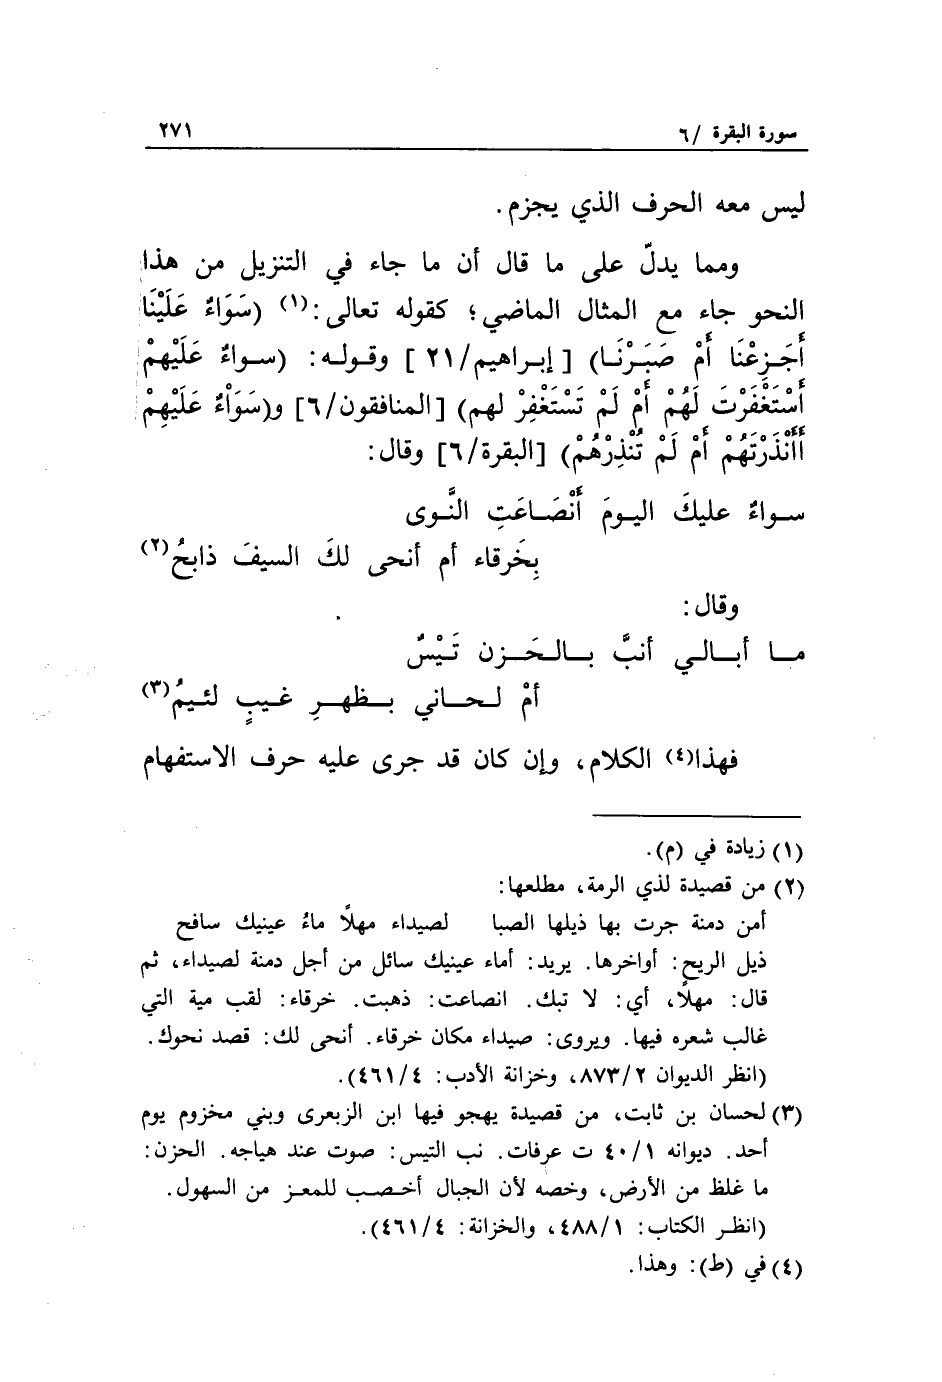 سورة البقرة /٦ ٢٧١
ليس معه الحرف الذي يجزم.
ومما يدلّ على ما قال أن ما جاء في التنزيل من هذا
النحو جاء مع المثال الماضي؛ كقوله تعالى:(١) (سَوَاءٌ عَلَيْنَا
أَجَزِعْنَا أَمْ صَبَرْنَا) [إبراهيم/٢١] وقوله: (سواءٌ عَلَيْهِمْ
أَسْتَغْفَرْتَ لَهُمْ أَمْ لَمْ تَسْتَغْفِرْ لهم) [المنافقون/٦] و(سَوَاءٌ عَلَيْهِمْ
أَأَنْذَرْتَهُمْ أَمْ لَمْ تُنْذِرْهُمْ) [البقرة/٦] وقال:
سواءٌ عليكَ اليومَ أَنْصَاعَتِ النَّوى
بِخَرقاء أم أنحى لكَ السيفَ ذابحُ(٢)
وقال:
ما أبالي أنبَّ بالحَزن تَيْسٌ
أمْ لحاني بظهرِ غيبٍ لئيمُ(٣)
فهذا(٤) الكلام، وإن كان قد جرى عليه حرف الاستفهام
(١) زيادة في (م).
(٢) من قصيدة لذي الرمة، مطلعها:
أمن دمنة جرت بها ذيلها الصبا لصيداء مهلاً ماءُ عينيك سافح
ذيل الريح: أواخرها. يريد: أماء عينيك سائل من أجل دمنة لصيداء، ثم
قال: مهلاً، أي: لا تبك. انصاعت: ذهبت. خرقاء: لقب مية التي
غالب شعره فيها. ويروى: صيداء مكان خرقاء. أنحى لك: قصد نحوك.
(انظر الديوان ٨٧٣/٢، وخزانة الأدب: ٤٦١/٤).
(٣) لحسان بن ثابت، من قصيدة يهجو فيها ابن الزبعرى وبني مخزوم يوم
أحد. ديوانه ٤٠/١ ت عرفات. نب التيس: صوت عند هياجه. الحزن:
ما غلظ من الأرض، وخصه لأن الجبال أخصب للمعز من السهول.
(انظر الكتاب: ٤٨٨/١، والخزانة: ٤٦١/٤).
(٤) في (ط): وهذا.